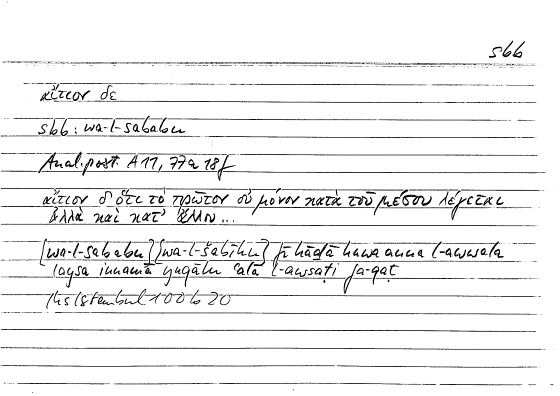 sbb
αἴτιον δε
sbb: wa-l-sababu
Anal. post. A 11, 77a 18f
αἴτιον δ' ὅτι τὸ πρῶτον οὐ μόνον κατὰ τοῦ μέσου λέγεται
ἀλλὰ καὶ κατ' ἄλλου...
[wa-l-sababu] {wa-l-šabīhu} fī hāḏā huwa anna l-awwala
laysa innamā yuqālu ʿalā l-awsaṭi fa-qaṭ
Hs Istanbul 100b 20